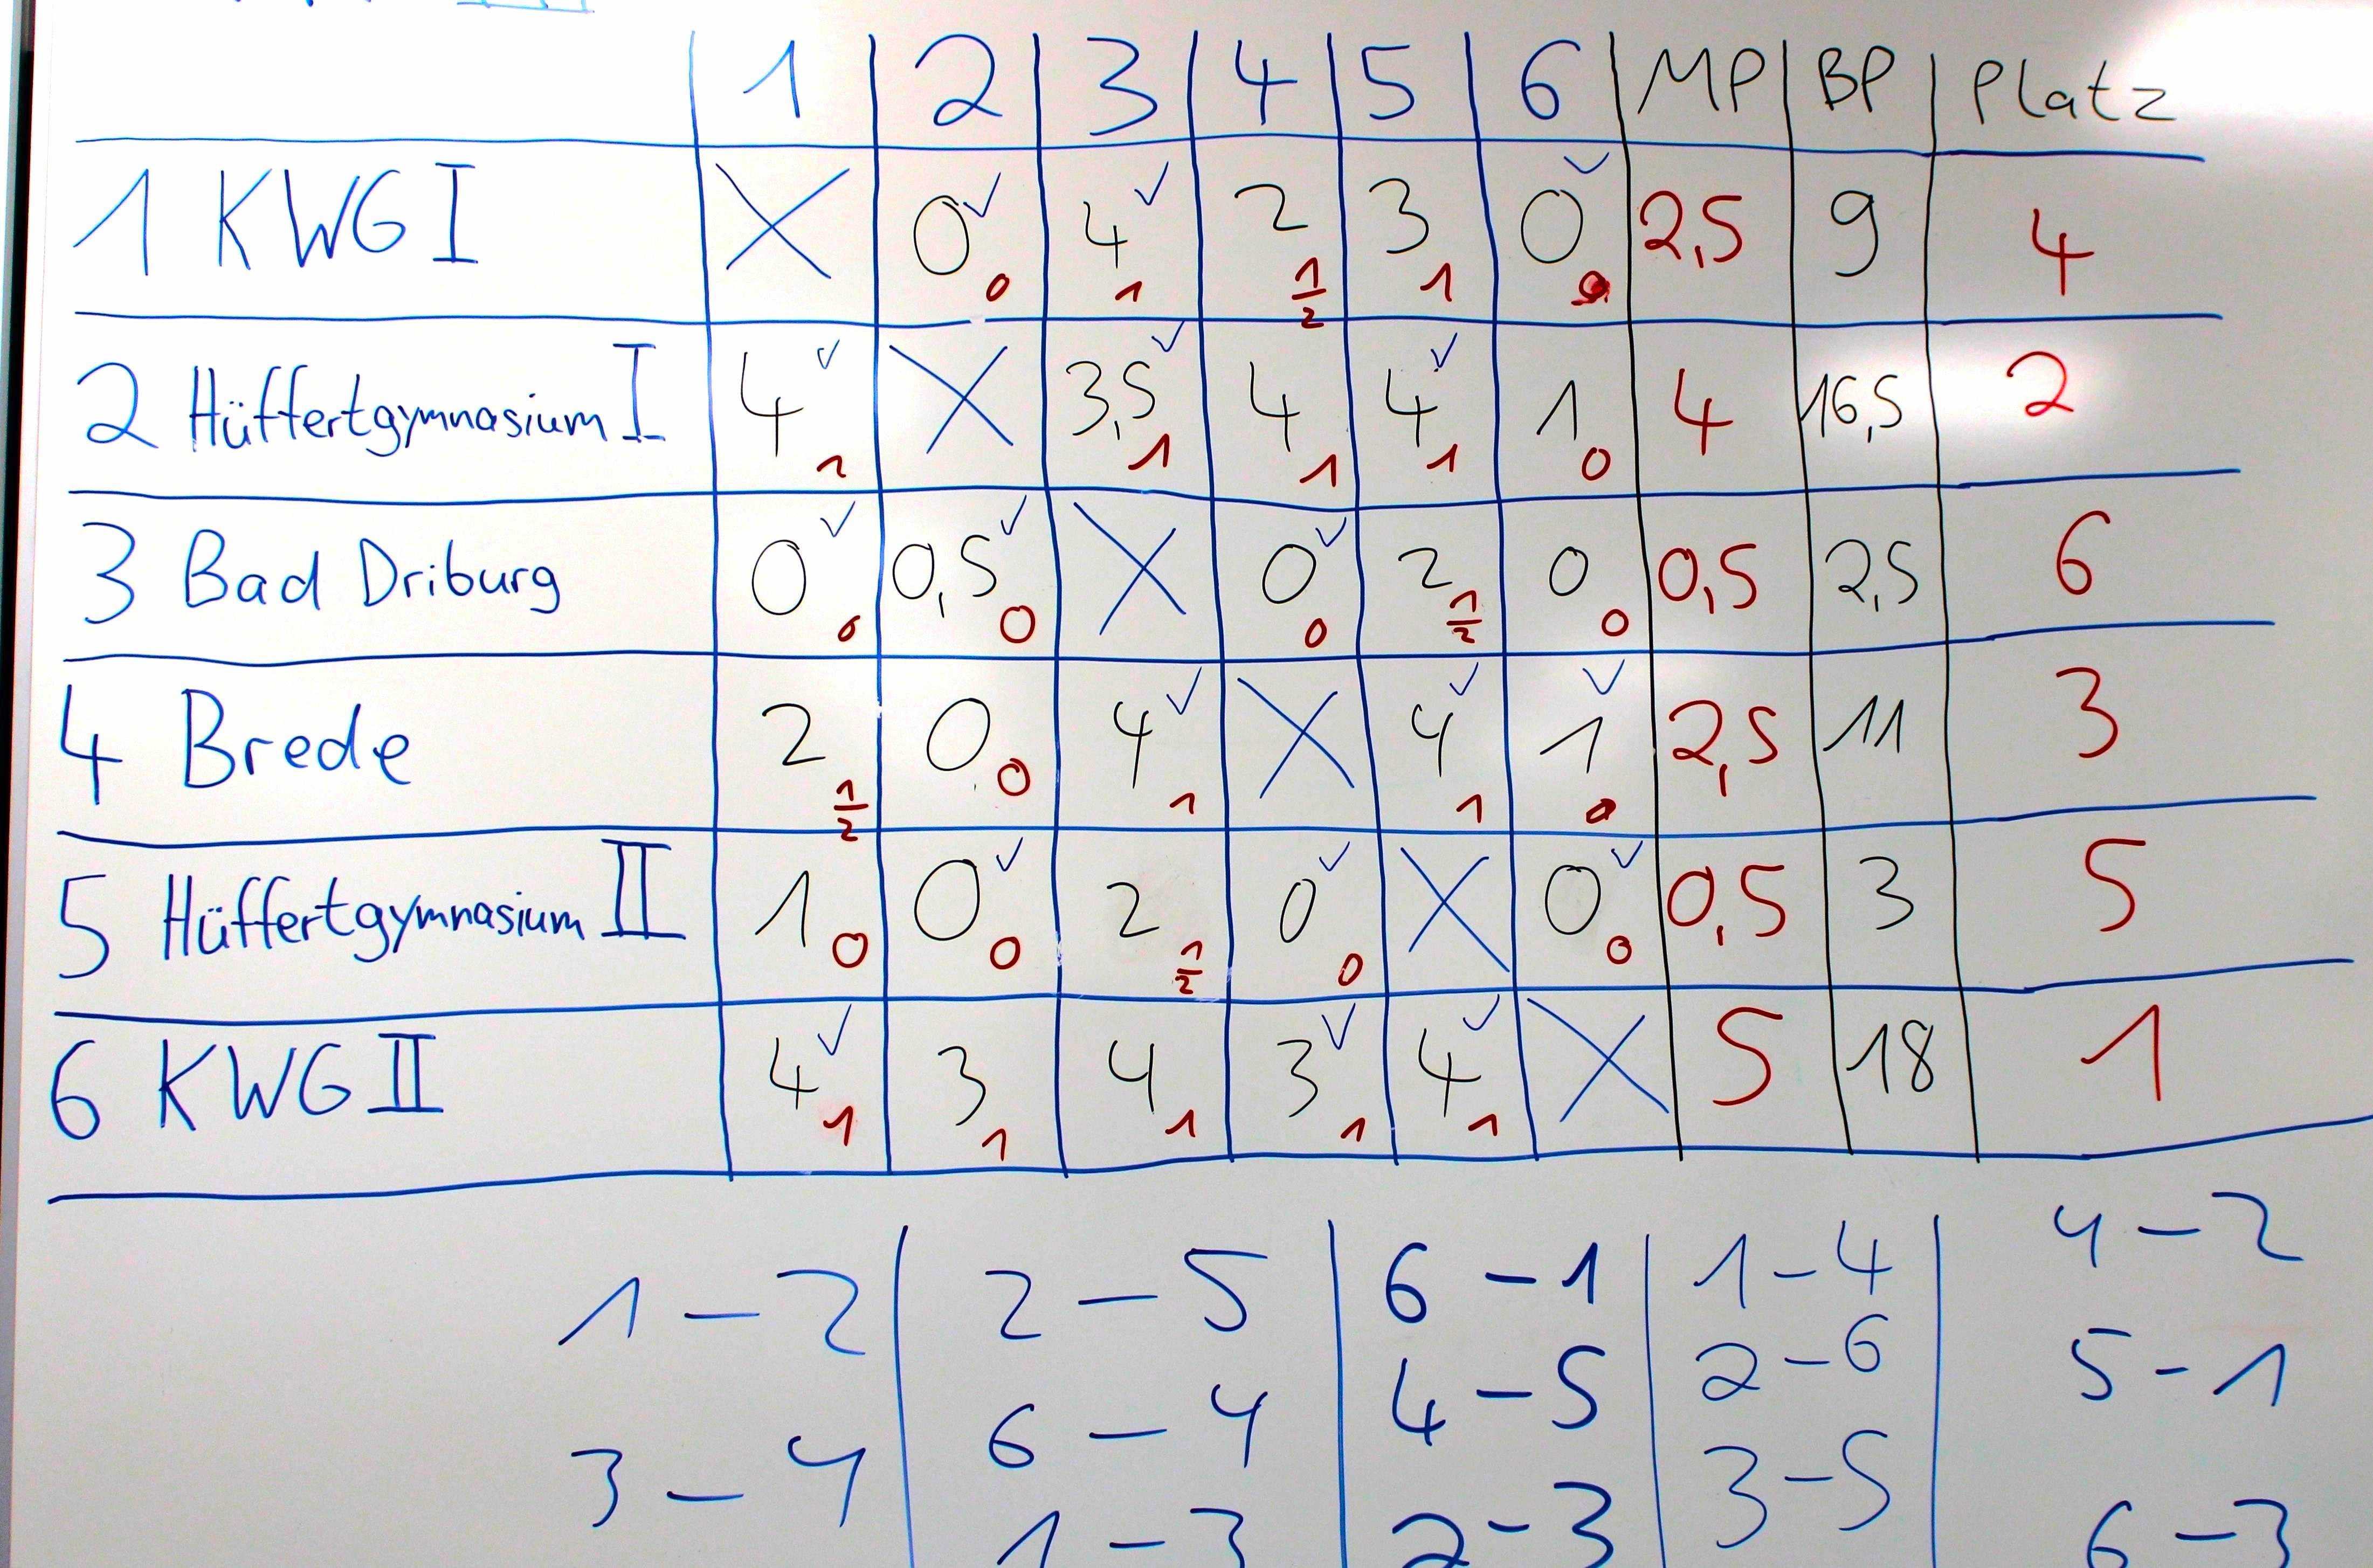 1 2 3 4 5 6 MP BP Platz
1 KWG I X 0✓ 0 4✓ 1 2 1/2 3 1 0✓ 0 2,5 9 4
2 Hüffertgymnasium I 4✓ 1 X 3,5✓ 1 4 1 4✓ 1 1 0 4 16,5 2
3 Bad Driburg 0✓ 0 0,5✓ 0 X 0✓ 0 2 1/2 0 0 0,5 2,5 6
4 Brede 2 1/2 0 0 4✓ 1 X 4✓ 1 1✓ 0 2,5 11 3
5 Hüffertgymnasium II 1 0 0✓ 0 2 1/2 0✓ 0 X 0✓ 0 0,5 3 5
6 KWG II 4✓ 1 3 1 4 1 3✓ 1 4✓ 1 X 5 18 1
1 – 2 2 – 5 6 – 1 1 – 4 4 – 2
3 – 4 6 – 4 4 – 5 2 – 6 5 – 1
1 – 3 2 – 3 3 – 5 6 – 3